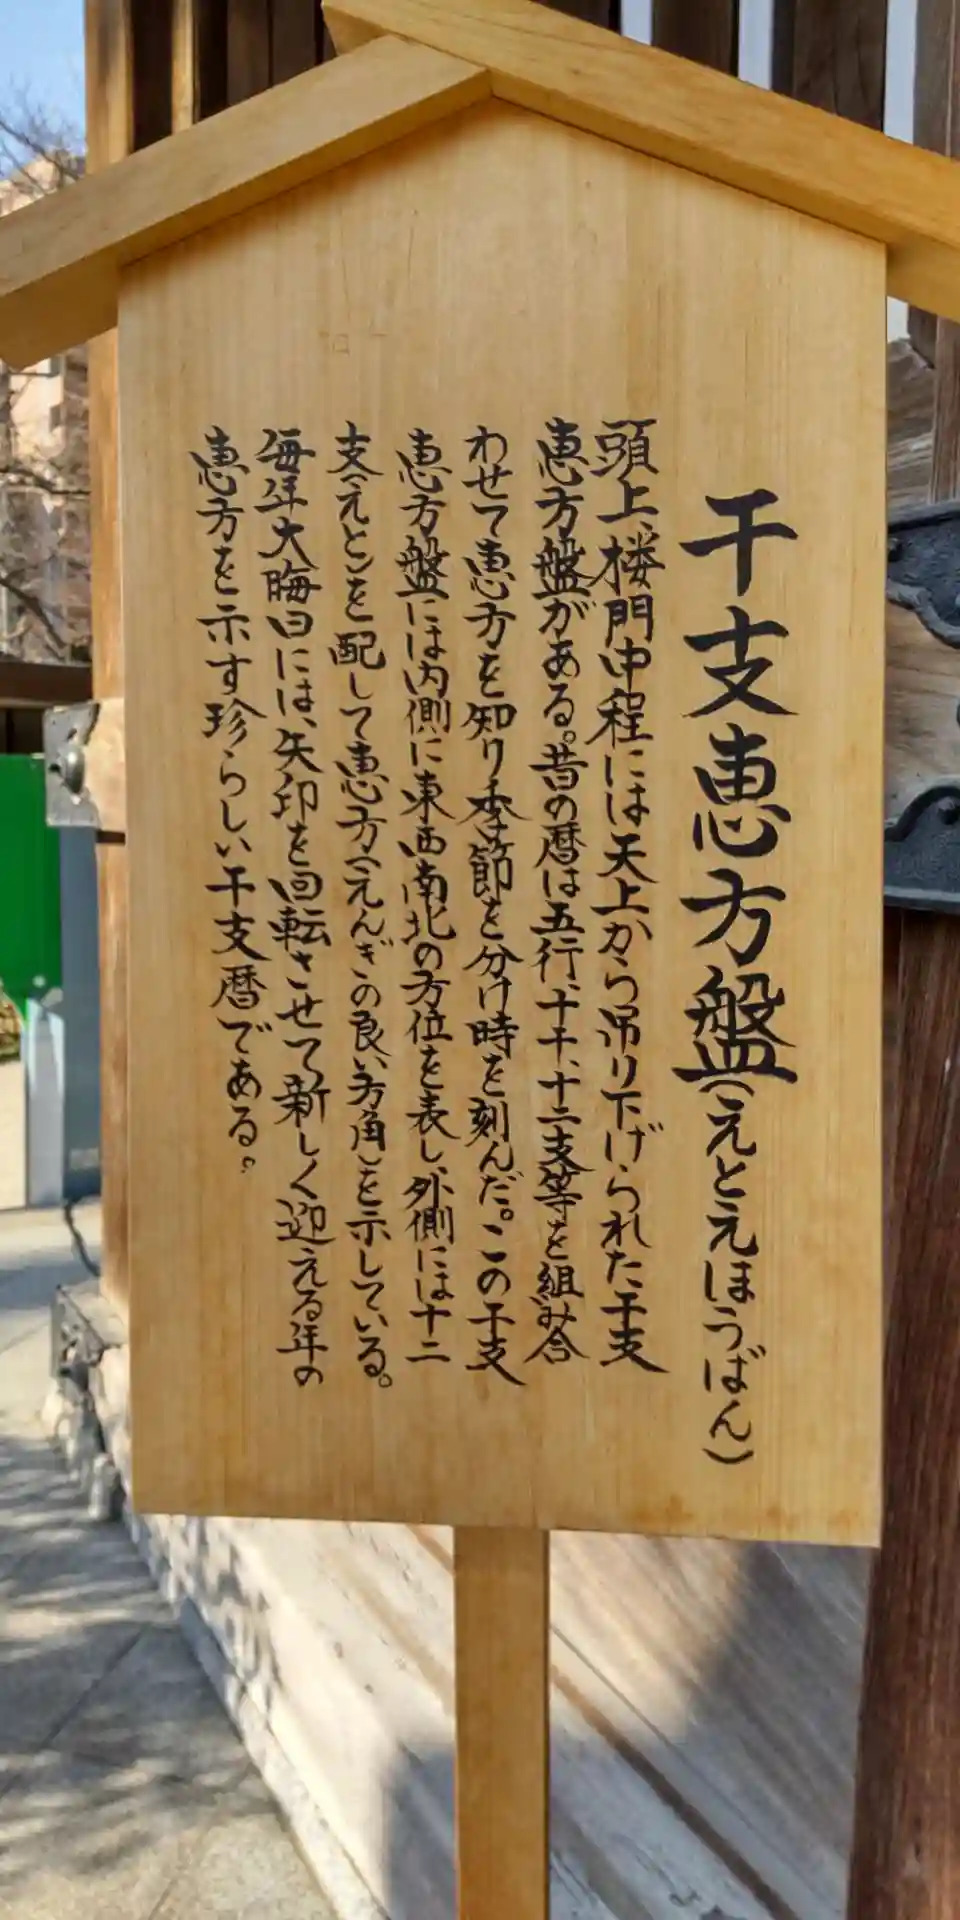 干支恵方盤(えとえほうばん)
頭上、楼門中程には天上から吊り下げられた干支
恵方盤がある。昔の暦は五行、十干、十二支等を組み合
わせて恵方を知り季節を分け時を刻んだ。この干支
恵方盤には内側に東西南北の方位を表し、外側には十二
支(えと)を配して恵方(えんぎの良い方角)を示している。
毎年大晦日には、矢印を回転させて新しく迎える年の
恵方を示す珍らしい干支暦である。